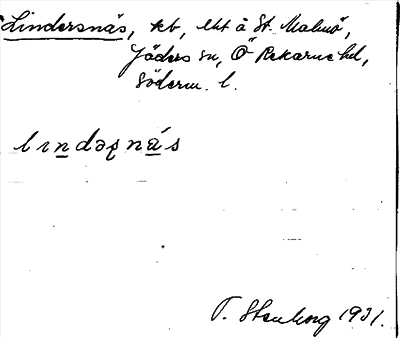 Lindersnäs, kt, lht å St. Malmö,
Jäders sn, Ö Rekarne hd,
Söderm. l.
T. Stenborg 1931.